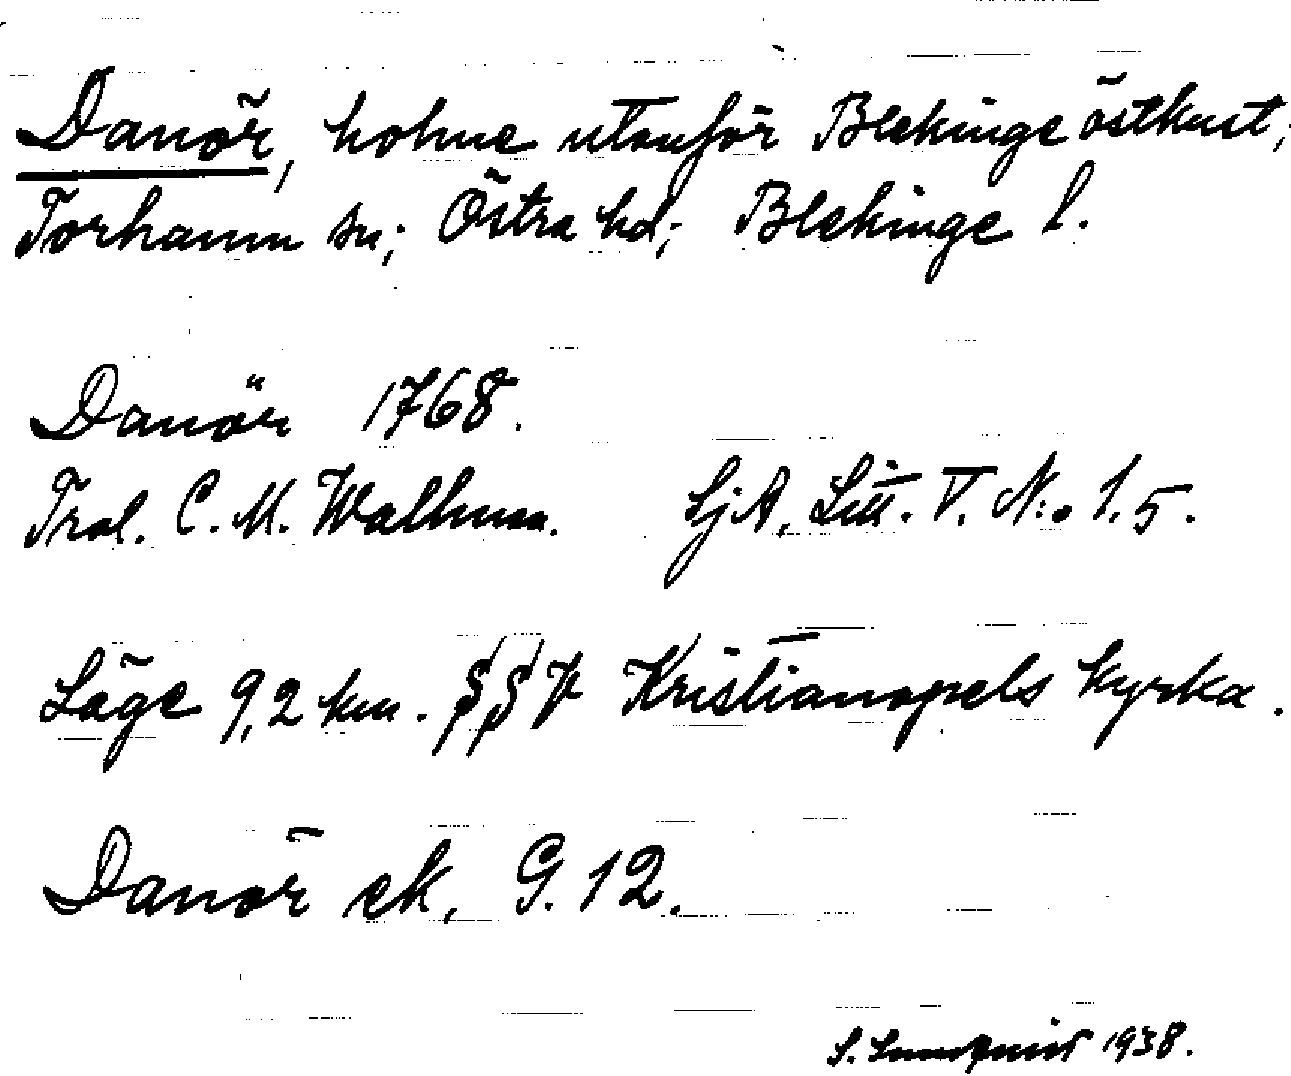 Danör, holme utanför Blekinge östkust;
Torhamn sn; Östra hd; Blekinge l.
Danör 1768.
Trol. C. M. Wallman. SjA. Litt. V. N:o 1.5.
Läge 9,2 km. SSV Kristianopels kyrka.
Danör ek. G. 12.
S. Lundqvist 1938.